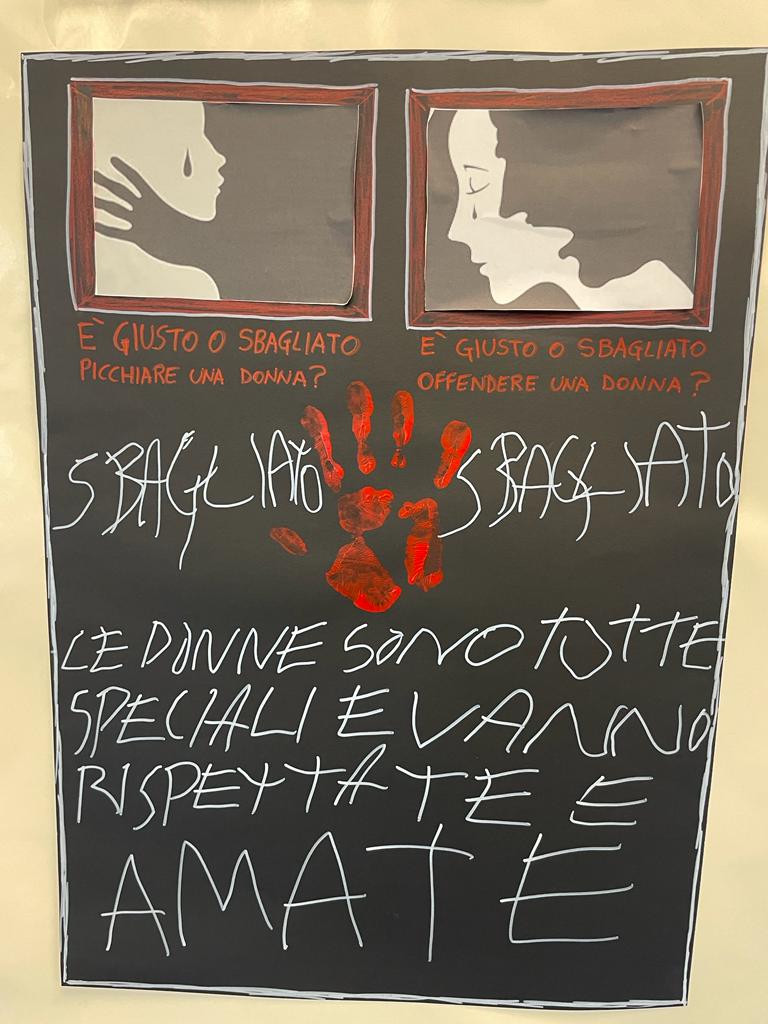 È GIUSTO O SBAGLIATO
PICCHIARE UNA DONNA?
È GIUSTO O SBAGLIATO
OFFENDERE UNA DONNA?
SBAGLIATO
SBAGLIATO
LE DONNE SONO TUTTE
SPECIALI E VANNO
RISPETTATE E
AMATE